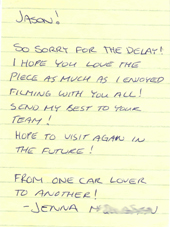 JASON!
SO SORRY FOR THE DELAY!
I HOPE YOU LOVE THE
PIECE AS MUCH AS I ENJOYED
FILMING WITH YOU ALL!
SEND MY BEST TO YOUR
TEAM!
HOPE TO VISIT AGAIN IN
THE FUTURE!
FROM ONE CAR LOVER
TO ANOTHER!
-JENNA